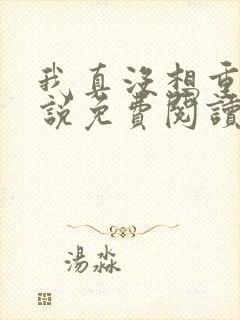 我真沒想重
說免費閱讀
湯淼